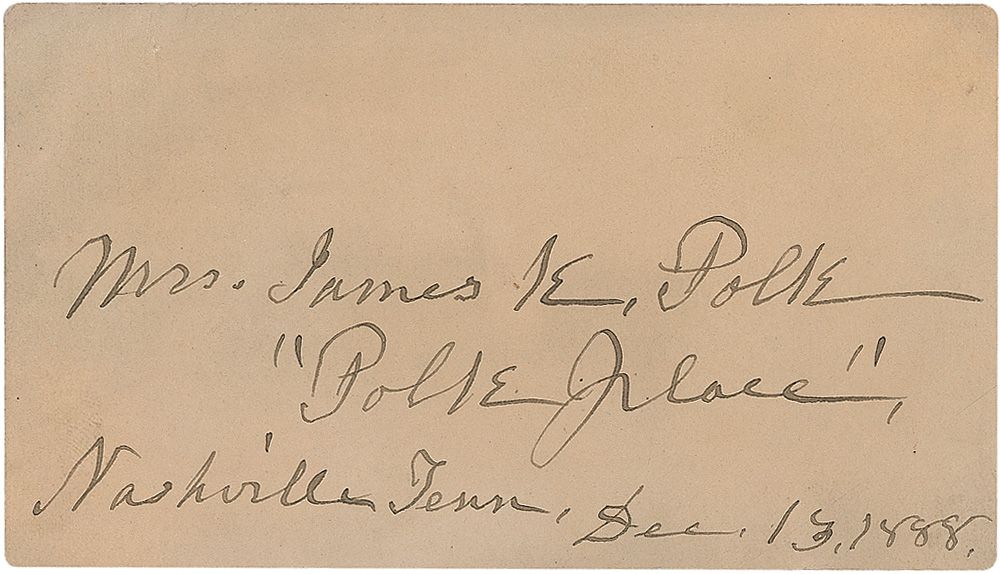 Mrs. James K. Polk
"Polk Place",
Nashville Tenn, Dec. 13, 1888.